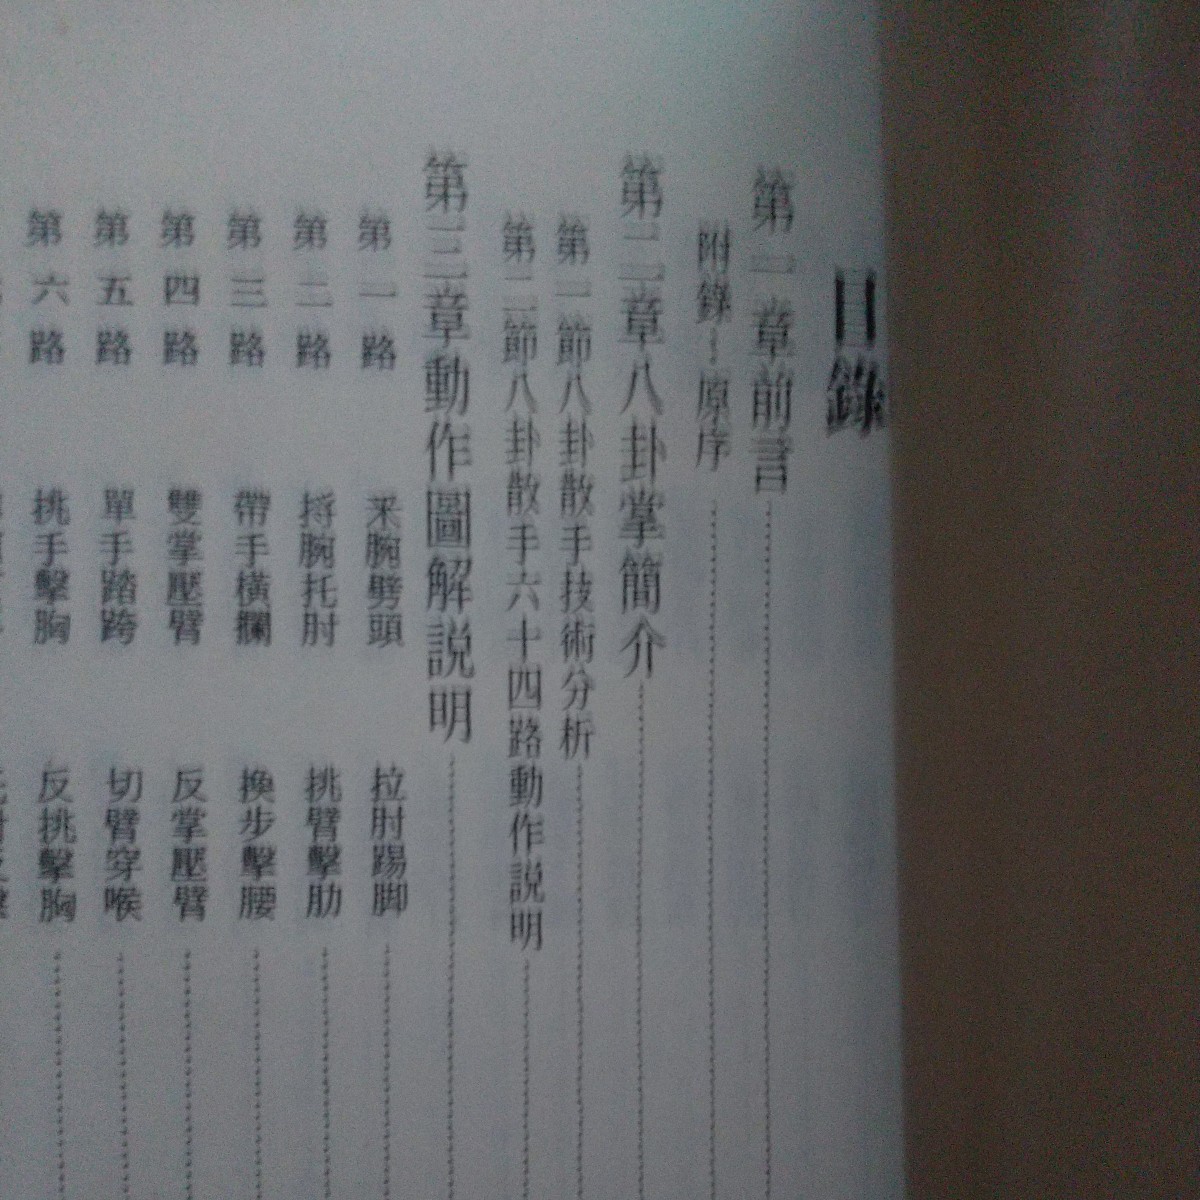 目錄
第一章前言
附錄：原序
第二章八卦掌簡介
第一節八卦散手技術分析
第二節八卦散手六十四路動作説明
第三章動作圖解説明
第一路 采腕劈頭 拉肘踢脚
第二路 捋腕托肘 挑臂擊肋
第三路 帶手橫攔 換步擊腰
第四路 雙掌壓臂 反掌壓臂
第五路 單手踏跨 切臂穿喉
第六路 挑手擊胸 反挑擊胸